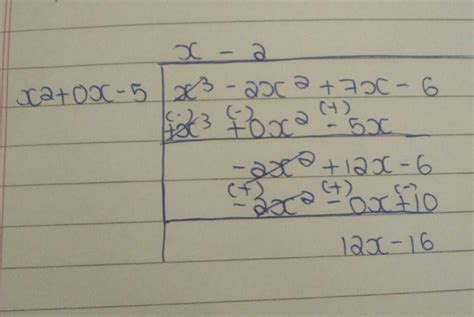 x - 2
x2+0x-5 x³ - 2x² + 7x - 6
(-) (-) (+)
+x³ +0x² - 5x
-2x² + 12x - 6
(+) (+) (-)
-2x² - 0x + 10
12x - 16